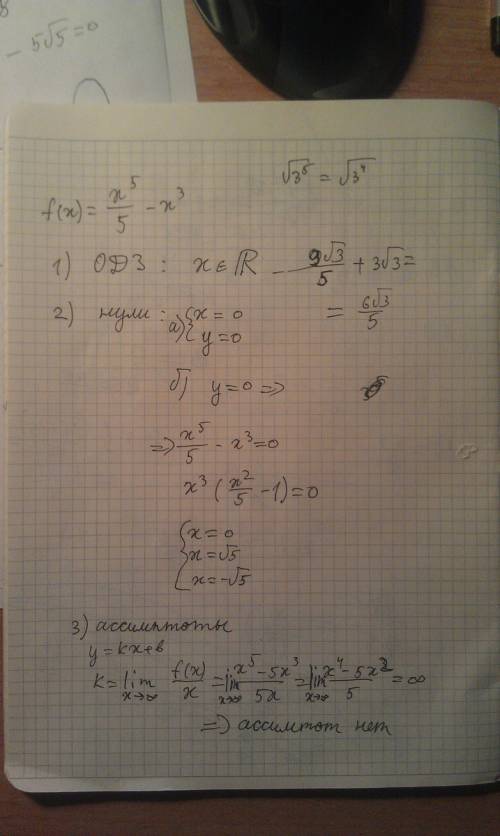 - 5√5 = 0
√3⁵ = √3⁴
f(x) = x⁵/5 - x³
1) ОДЗ : x ∈ ℝ
- 9√3/5 + 3√3 =
= 6√3/5
2) нули : а) { x = 0
y = 0
б) y = 0 =>
=> x⁵/5 - x³ = 0
x³ ( x²/5 - 1 ) = 0
[ x = 0
x = √5
x = -√5
3) ассимптоты
y = kx + b
k = lim x→∞ f(x)/x = lim x→∞ x⁵ - 5x³/5x = lim x→∞ x⁴ - 5x²/5 = ∞
=> ассимтот нет